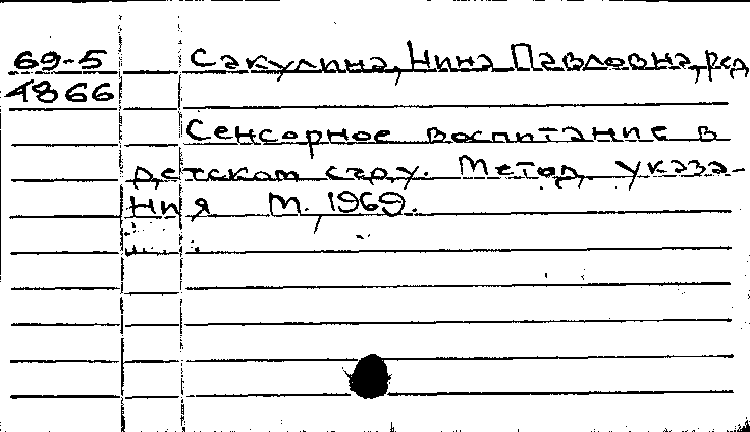 69-5 Сакулина, Нина Павловна, ред
4866
Сенсорное воспитание в
детском саду. Метод. указа-
ния М., 1969.